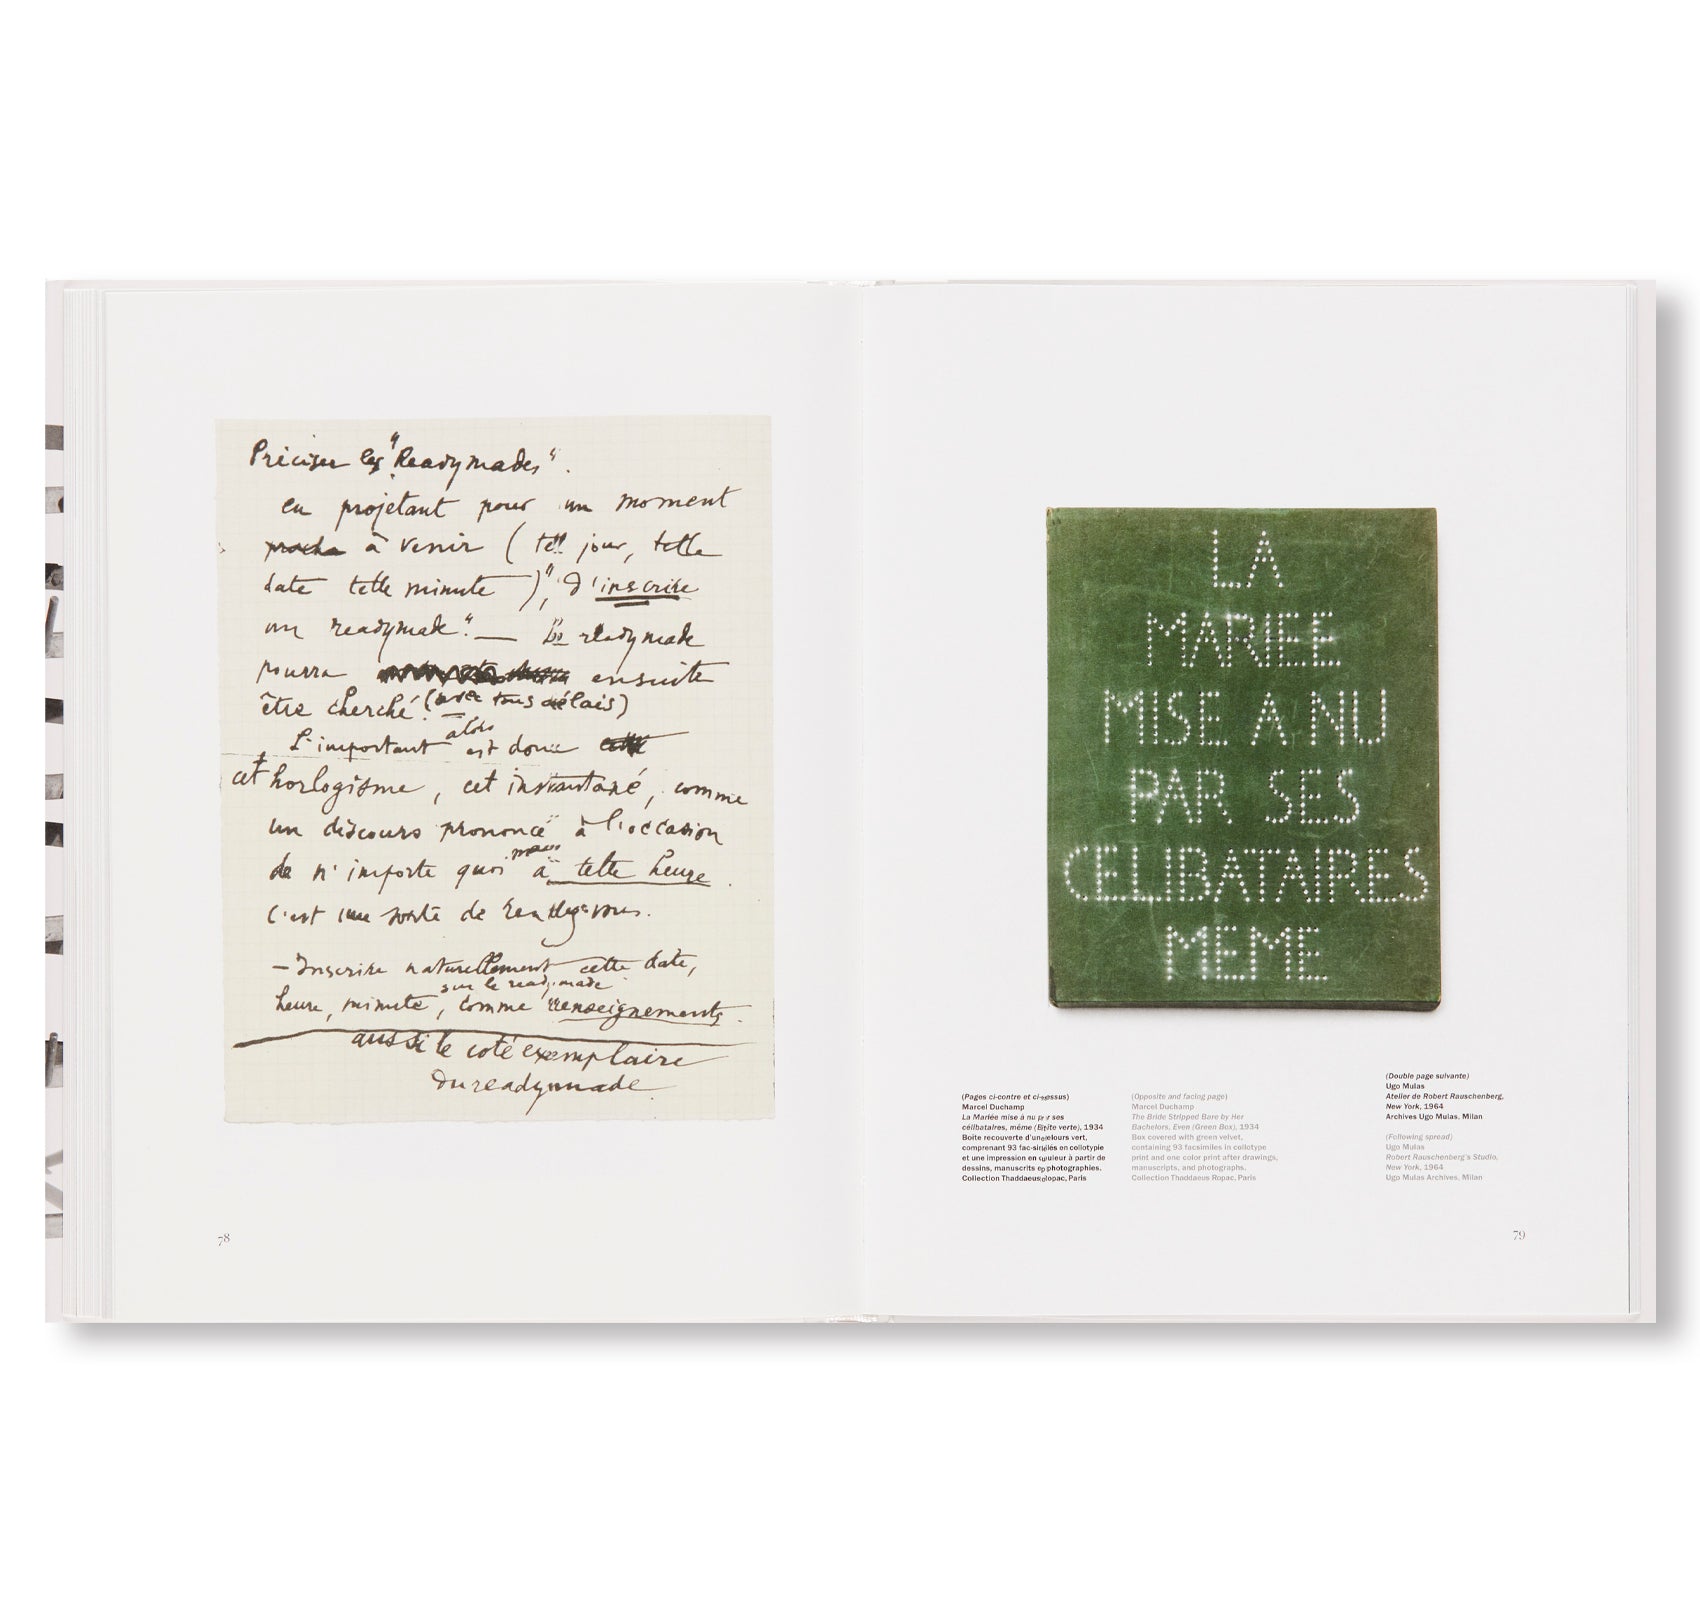 Préciser les "Readymades".
en projetant pour un moment
à venir (tel jour, telle
date telle minute), "d'inscrire
un readymade". — Le readymade
pourra ensuite
être cherché. (avec tous délais)
L'important alors est donc
cet horlogisme, cet instantané, comme
un discours prononcé à l'occasion
de n'importe quoi mais à telle heure.
C'est une sorte de rendez-vous.
— Inscrire naturellement cette date,
heure, minute, sur le readymade comme renseignements.
aussi le coté exemplaire
du readymade
78
LA
MARIEE
MISE A NU
PAR SES
CELIBATAIRES
MEME
(Pages ci-contre et ci-dessus)
Marcel Duchamp
La Mariée mise à nu par ses
célibataires, même (Boîte verte), 1934
Boîte recouverte d'un velours vert,
comprenant 93 fac-similés en collotypie
et une impression en couleur à partir de
dessins, manuscrits et photographies.
Collection Thaddaeus Ropac, Paris
(Opposite and facing page)
Marcel Duchamp
The Bride Stripped Bare by Her
Bachelors, Even (Green Box), 1934
Box covered with green velvet,
containing 93 facsimiles in collotype
print and one color print after drawings,
manuscripts, and photographs.
Collection Thaddaeus Ropac, Paris
(Double page suivante)
Ugo Mulas
Atelier de Robert Rauschenberg,
New York, 1964
Archives Ugo Mulas, Milan
(Following spread)
Ugo Mulas
Robert Rauschenberg's Studio,
New York, 1964
Ugo Mulas Archives, Milan
79